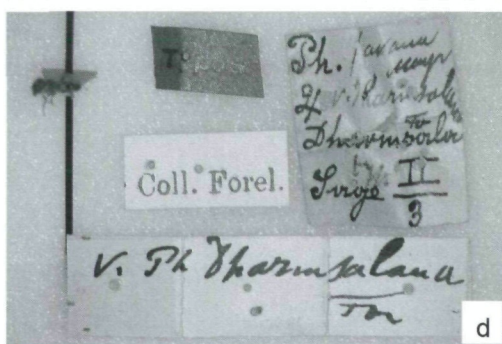 Ph. javana
Mayr
☿ v. Dharmsalana
For
Dharmsala
Sage II
3
Coll. Forel.
v. Ph Dharmsalana
For
d